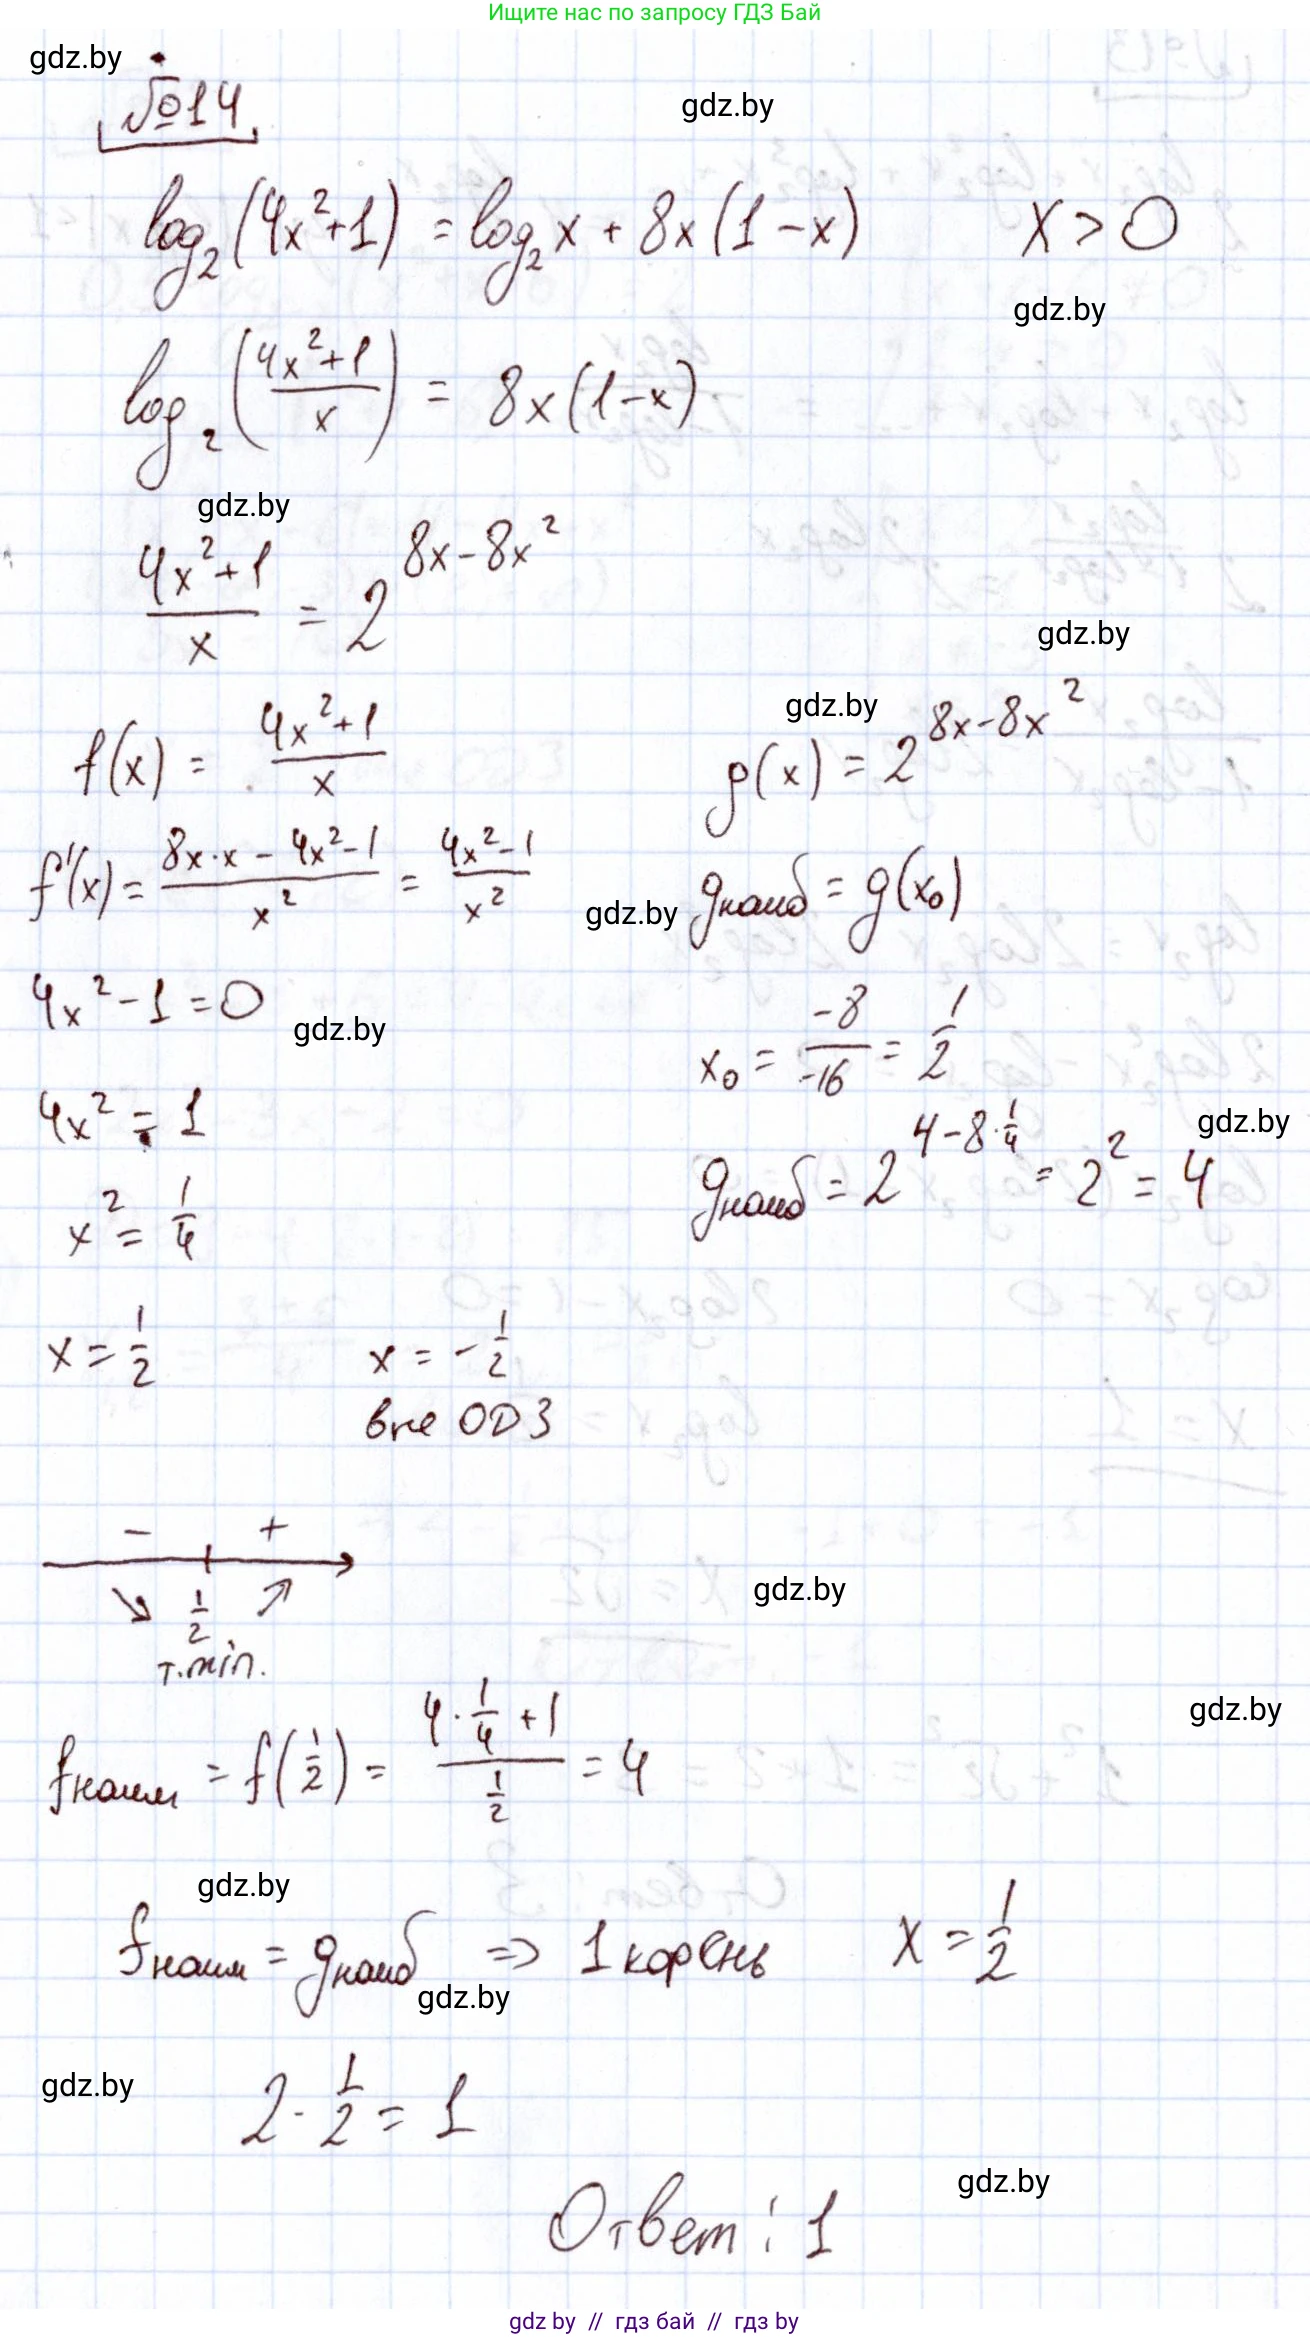 Ищите нас по запросу ГДЗ Бай
gdz.by
№14
gdz.by
log₂(4x²+1) = log₂x + 8x(1-x)   x > 0
gdz.by
log₂((4x²+1)/x) = 8x(1-x)
gdz.by
(4x²+1)/x = 2^(8x-8x²)
gdz.by
gdz.by
f(x) = (4x²+1)/x   g(x) = 2^(8x-8x²)
f'(x) = (8x·x - 4x²-1)/x² = (4x²-1)/x²   gнаиб = g(x₀)
gdz.by
4x²-1 = 0   x₀ = -8/-16 = 1/2
gdz.by
4x² = 1
gdz.by
gнаиб = 2^(4-8·1/4) = 2² = 4
x² = 1/4
x = 1/2   x = -1/2
вне ОDЗ
-   +
1/2
gdz.by
т.min.
gdz.by
fнаим = f(1/2) = (4·1/4+1)/(1/2) = 4
gdz.by
fнаим = gнаиб => 1 корень   x = 1/2
gdz.by
gdz.by
2·1/2 = 1
gdz.by
Ответ: 1
gdz by // гдз бай // гдз by